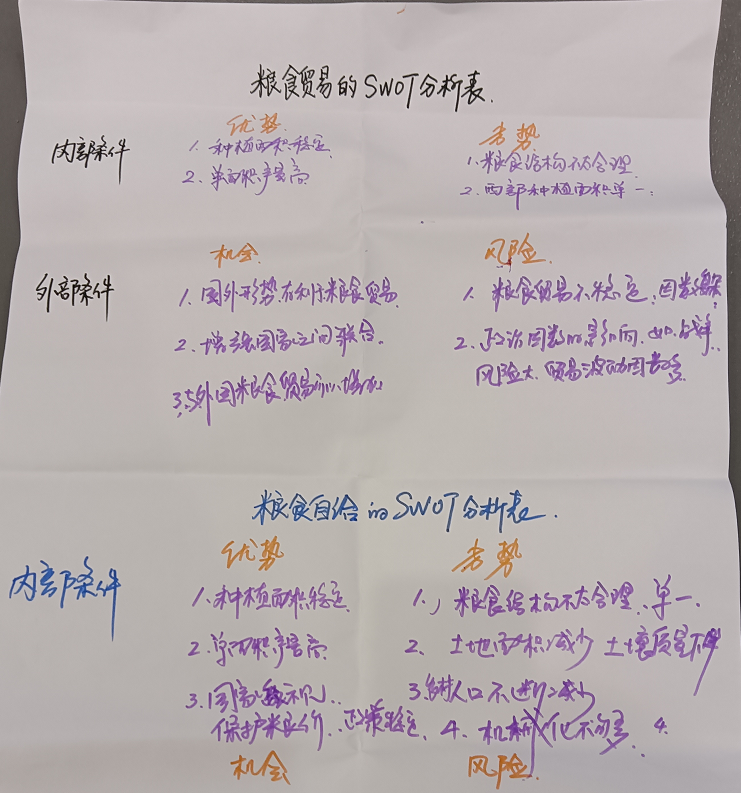 粮食贸易的SWOT分析表.
优势 劣势
内部条件
1. 种植面积稳定. 1. 粮食结构不太合理.
2. 单面积产量高 2. 西部种植面积单一.
机会 风险
外部条件
1. 国外形势有利于粮食贸易. 1. 粮食贸易不稳定,因数
2. 增强国家之间联合. 2. 政治因数的影响,如:战争.
3.与外国粮食贸易 风险大.贸易波动因数多
粮食自给的SWOT分析表.
优势 劣势
内部条件
1. 种植面积稳定. 1. 粮食结构不太合理.单一.
2. 单面积产量高 2、土地面积减少 土壤质量下降
3. 国家重视. 3.农村人口不断减少
保护粮价.政策稳定. 4、机械化不够多 4.
机会 风险